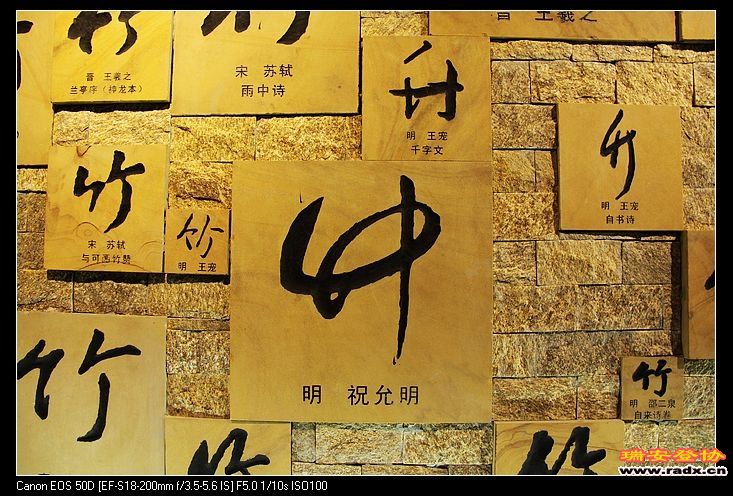 晋 王羲之
竹
晋 王羲之
兰亭序（神龙本）
竹
宋 苏轼
雨中诗
竹
明 王宠
千字文
竹
明 王宠
自书诗
竹
宋 苏轼
与可画竹赞
竹
明 王宠
竹
明 祝允明
竹
竹
明 邵二泉
自来诗卷
竹
竹
瑞安登协
www.radx.cn
Canon EOS 50D [EF-S18-200mm f/3.5-5.6 IS] F5.0 1/10s ISO100